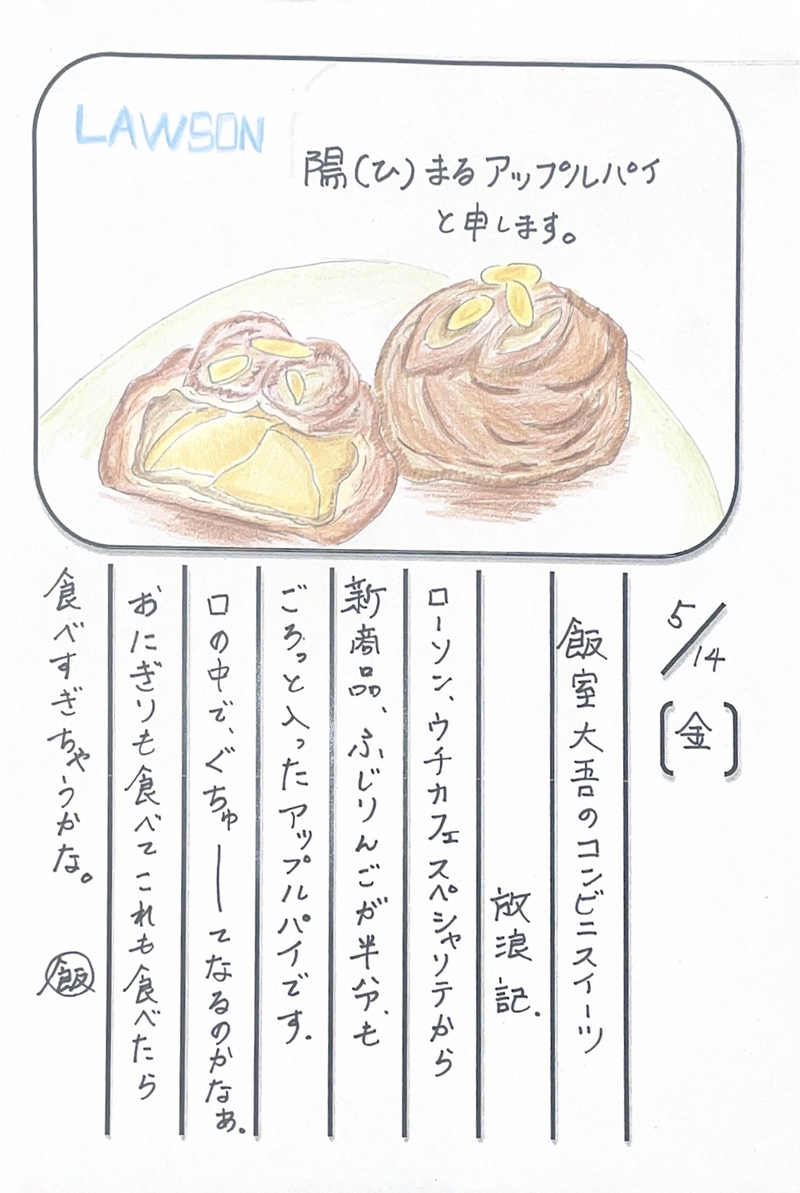 LAWSON
陽(ひ)まるアップルパイ
と申します。
5/14
(金)
飯室大吾のコンビニスイーツ
放浪記.
ローソン、ウチカフェスペシャリテから
新商品、ふじりんごが半分、も
ごろっと入ったアップルパイです.
口の中で、ぐちゅーてなるのかなぁ.
おにぎりも食べてこれも食べたら
食べすぎちゃうかな。
飯